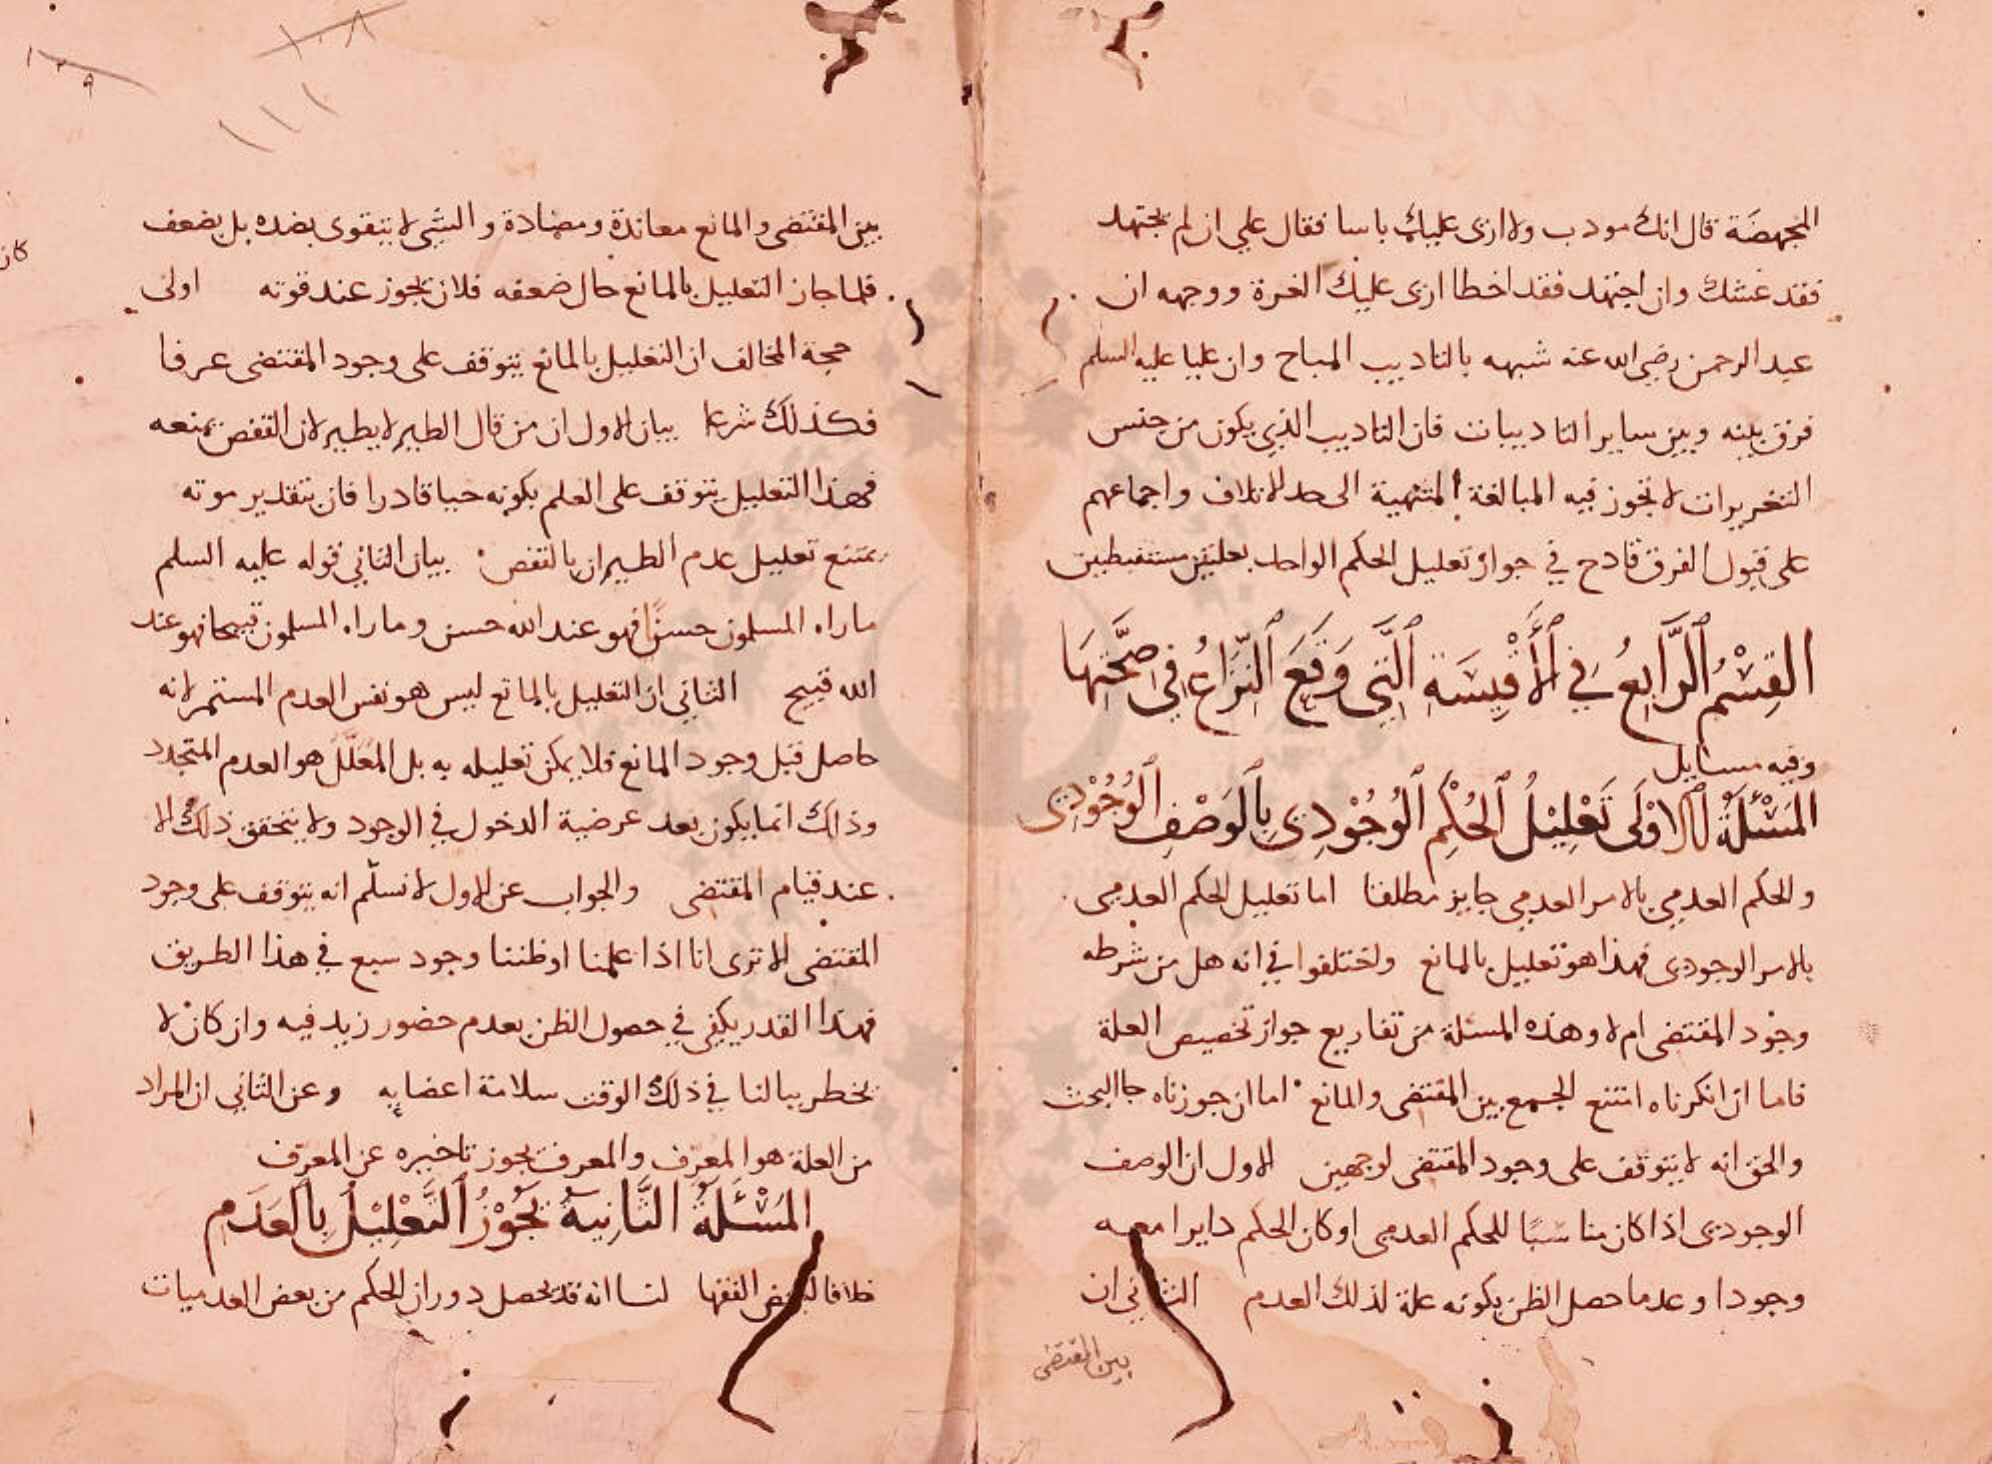 المجهضة قال انك مودب ولا ارى عليك باسا فقال علي ان لم يجتهد
فقد غشك وان اجتهد فقد اخطا ارى عليك الغرة ووجهه ان
عبد الرحمن رضي الله عنه شبهه بالتاديب المباح وان عليا عليه السلم
فرق بينه وبين ساير التاديبات فان التاديب الذي يكون من جنس
التعزيرات لا تجوز فيه المبالغة المنتهية الى حد الاتلاف واجماعهم
على قبول الفرق قادح في جواز تعليل الحكم الواحد بعلتين مستنبطتين
القِسْمُ الرَّابِعُ فِي الأَقْيِسَةِ الَّتِي وَقَعَ النِّزَاعُ فِي صِحَّتِهَا
وفيه مسايل
المَسْئَلَةُ الاوْلَى تَعْلِيْلُ الحُكْمِ الوُجُوْدِي بِالوَصْفِ الوُجُوْدِي
والحكم العدمي بالامر العدمي جايز مطلقا اما تعليل الحكم العدمي
بالامر الوجودي فهذا هو تعليل بالمانع واختلفوا في انه هل من شرطه
وجود المقتضى ام لا وهذه المسئلة من تفاريع جواز تخصيص العلة
فاما ان انكرناه امتنع الجمع بين المقتضى والمانع اما ان جوزناه جا البحث
والحق انه لا يتوقف على وجود المقتضى لوجهين الاول ان الوصف
الوجودي اذا كان مناسبًا للحكم العدمي او كان الحكم دايرا معه
وجودا وعدما حصل الظن بكونه علة لذلك العدم الثاني ان
بين المقتضى
١٠٨
١٠٩
١١١
بين المقتضى والمانع معاندة ومضادة والشي لا يتقوى بضده بل يضعف
فلما جاز التعليل بالمانع حال ضعفه فلان يجوز عند قوته اولى
حجة المخالف ان التعليل بالمانع يتوقف على وجود المقتضى عرفا
فكذلك شرعا بيان الاول ان من قال الطير لا يطير لان القفص يمنعه
فهذا التعليل يتوقف على العلم بكونه حيا قادرا فان بتقدير موته
يمتنع تعليل عدم الطيران بالقفص بيان الثاني قوله عليه السلم
ماراه المسلمون حسنًا فهو عند الله حسن وماراه المسلمون قبيحا فهو عند
الله قبيح الثاني ان التعليل بالمانع ليس هو نفس العدم المستمر لانه
حاصل قبل وجود المانع فلا يمكن تعليله به بل المعلّل هو العدم المتجدد
وذلك انما يكون بعد عرضية الدخول في الوجود ولا يتحقق ذلك الا
عند قيام المقتضى والجواب عن الاول لا نسلّم انه يتوقف على وجود
المقتضى الا ترى انا اذا علمنا او ظننا وجود سبع في هذا الطريق
فهذا القدر يكفي في حصول الظن بعدم حضور زيد فيه وان كان لا
يخطر ببالنا في ذلك الوقت سلامة اعضايه وعن الثاني ان المراد
من العلة هو المعرّف والمعرف يجوز تاخيره عن المعرّف
المَسْئَلَةُ الثَّانِيَةُ يَجُوْزُ التَّعْلِيْلُ بِالعَدَمِ
خلافا لبعض الفقها لنا انه قد يحصل دوران الحكم من بعض العدميات
كان